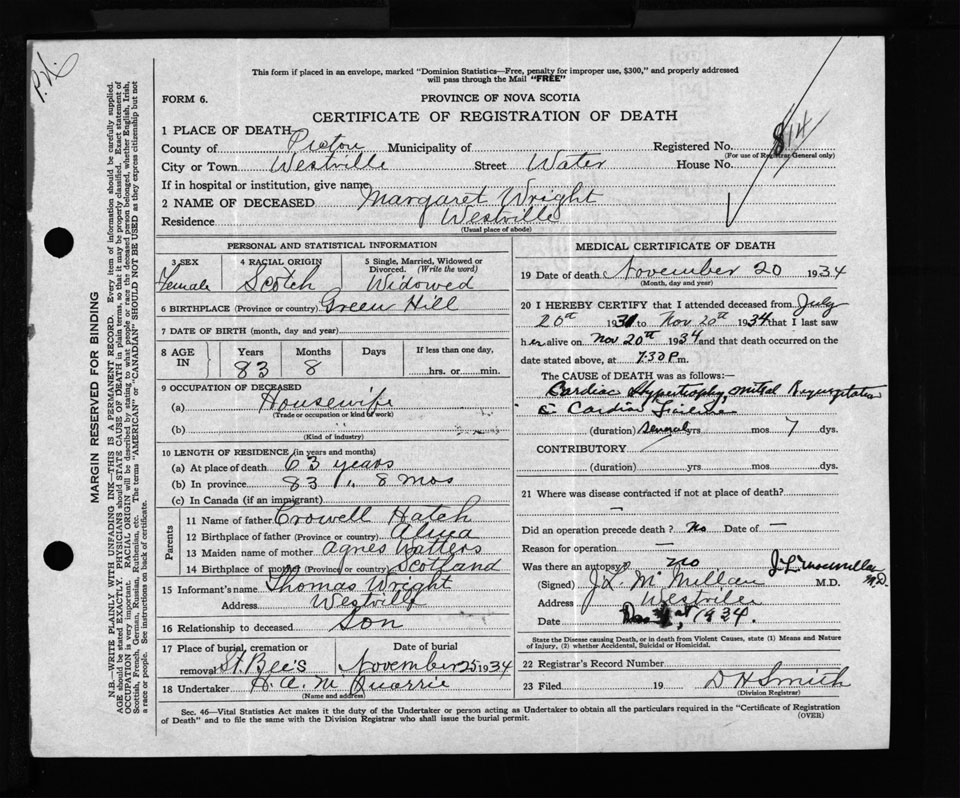 P.N.
This form if placed in an envelope, marked "Dominion Statistics—Free, penalty for improper use, $300," and properly addressed
will pass through the Mail "FREE"
FORM 6.
PROVINCE OF NOVA SCOTIA
CERTIFICATE OF REGISTRATION OF DEATH
1 PLACE OF DEATH
County of Pictou Municipality of Registered No. 814
(For use of Registrar General only)
City or Town Westville Street Water House No.
If in hospital or institution, give name
2 NAME OF DECEASED Margaret Wright
Residence Westville
(Usual place of abode)
MARGIN RESERVED FOR BINDING
N.B.—WRITE PLAINLY WITH UNFADING INK—THIS IS A PERMANENT RECORD. Every item of information should be carefully supplied.
AGE should be stated EXACTLY. PHYSICIANS should STATE CAUSE OF DEATH in plain terms, so that it may be properly classified. Exact statement of
OCCUPATION is very important. RACIAL ORIGIN will be described by stating to what people or race the deceased person belonged, whether English, Irish,
Scottish, French, German, Russian, Ruthenian, etc. The terms "AMERICAN" or "CANADIAN" SHOULD NOT BE USED as they express citizenship but not
a race or people. See instructions on back of certificate.
PERSONAL AND STATISTICAL INFORMATION
3 SEX
Female
4 RACIAL ORIGIN
Scotch
5 Single, Married, Widowed or
Divorced. (Write the word)
Widowed
6 BIRTHPLACE (Province or country) Green Hill
7 DATE OF BIRTH (month, day and year)
8 AGE IN
Years Months Days If less than one day,
83 8 hrs. or min.
9 OCCUPATION OF DECEASED
(a) Housewife
(Trade or occupation or kind of work)
(b) "
(Kind of industry)
10 LENGTH OF RESIDENCE (in years and months)
(a) At place of death 63 years
(b) In province 83 " 8 mos
(c) In Canada (if an immigrant)
Parents
11 Name of father Crowell Hatch
12 Birthplace of father (Province or country)
13 Maiden name of mother Agnes Watters
14 Birthplace of mother (Province or country) Scotland
15 Informant's name Thomas Wright
Address Westville
16 Relationship to deceased Son
17 Place of burial, cremation or
removal St. Bee's
Date of burial
November 25 1934
18 Undertaker H. A. McQuarrie
(Name and address)
MEDICAL CERTIFICATE OF DEATH
19 Date of death November 20 1934
(Month, day and year)
20 I HEREBY CERTIFY that I attended deceased from July
20th 1931 to Nov 20th 1934 that I last saw
her alive on Nov 20th 1934 and that death occurred on the
date stated above, at 7:30 P.m.
The CAUSE OF DEATH was as follows:
Cardiac Hypertrophy, mitral Regurgitation
Cardiac
(duration) several yrs mos 7 dys.
CONTRIBUTORY
(duration) yrs mos dys.
21 Where was disease contracted if not at place of death?
—
Did an operation precede death? No Date of —
Reason for operation —
Was there an autopsy? no
(Signed) J. L. McMillan M.D.
J. L. McMillan M.D.
Address Westville
Date 1934.
State the Disease causing Death, or in death from Violent Causes, state (1) Means and Nature
of Injury, (2) whether Accidental, Suicidal or Homicidal.
22 Registrar's Record Number
23 Filed 19 D H Smith
(Division Registrar)
Sec. 46—Vital Statistics Act makes it the duty of the Undertaker or person acting as Undertaker to obtain all the particulars required in the "Certificate of Registration
of Death" and to file the same with the Division Registrar who shall issue the burial permit.
(OVER)